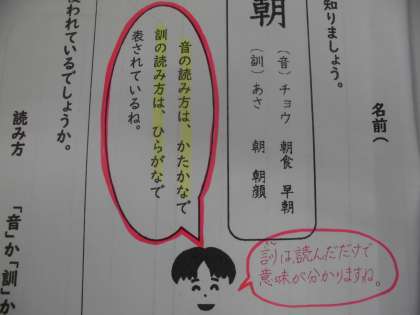 知りましょう。
名前（
朝
（音）チョウ　朝食　早朝
（訓）あさ　朝　朝顔
音の読み方は、かたかなで
訓の読み方は、ひらがなで
表されているね。
訓は読んだだけで
意味が分かりますね。
われているでしょうか。
読み方
「音」か「訓」か